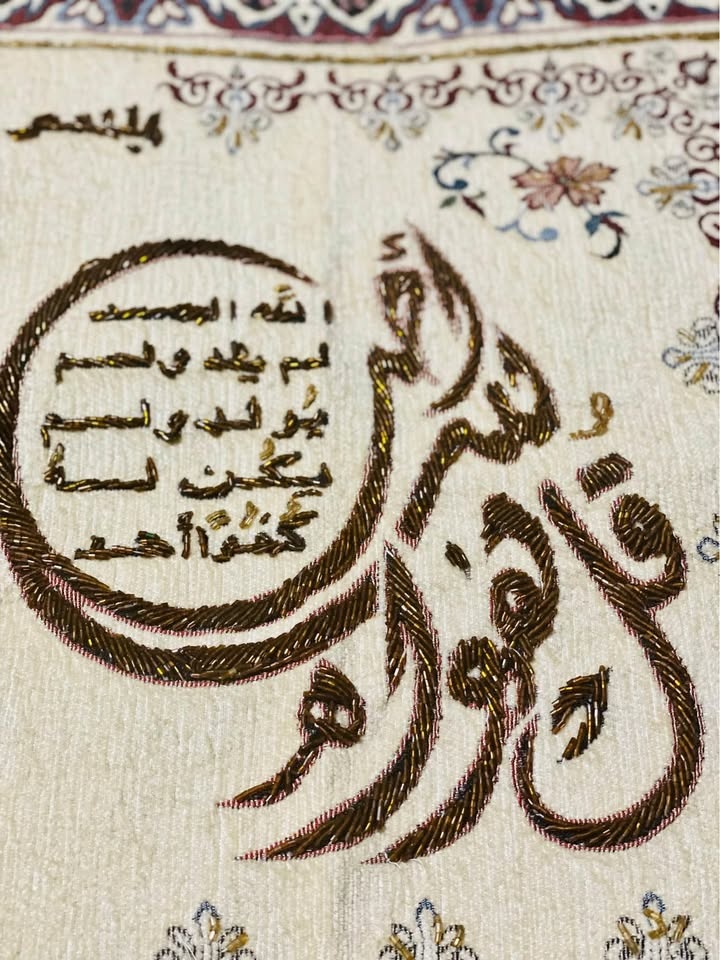 بسم
قل هو الله أحد
اللّه الصمد
لم يلد ولم
يُولد ولم
يكُن لهُ
كُفُوًا أحد